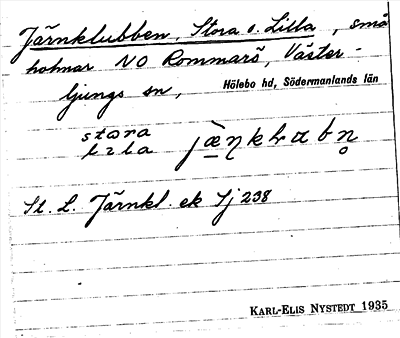 Järnklubben, Stora o. Lilla, små
holmar NO Rommarö, Väster-
ljungs sn, Hölebo hd, Södermanlands län
stora
St. L. Järnkl. ek Sj 238
KARL-ELIS NYSTEDT 1935